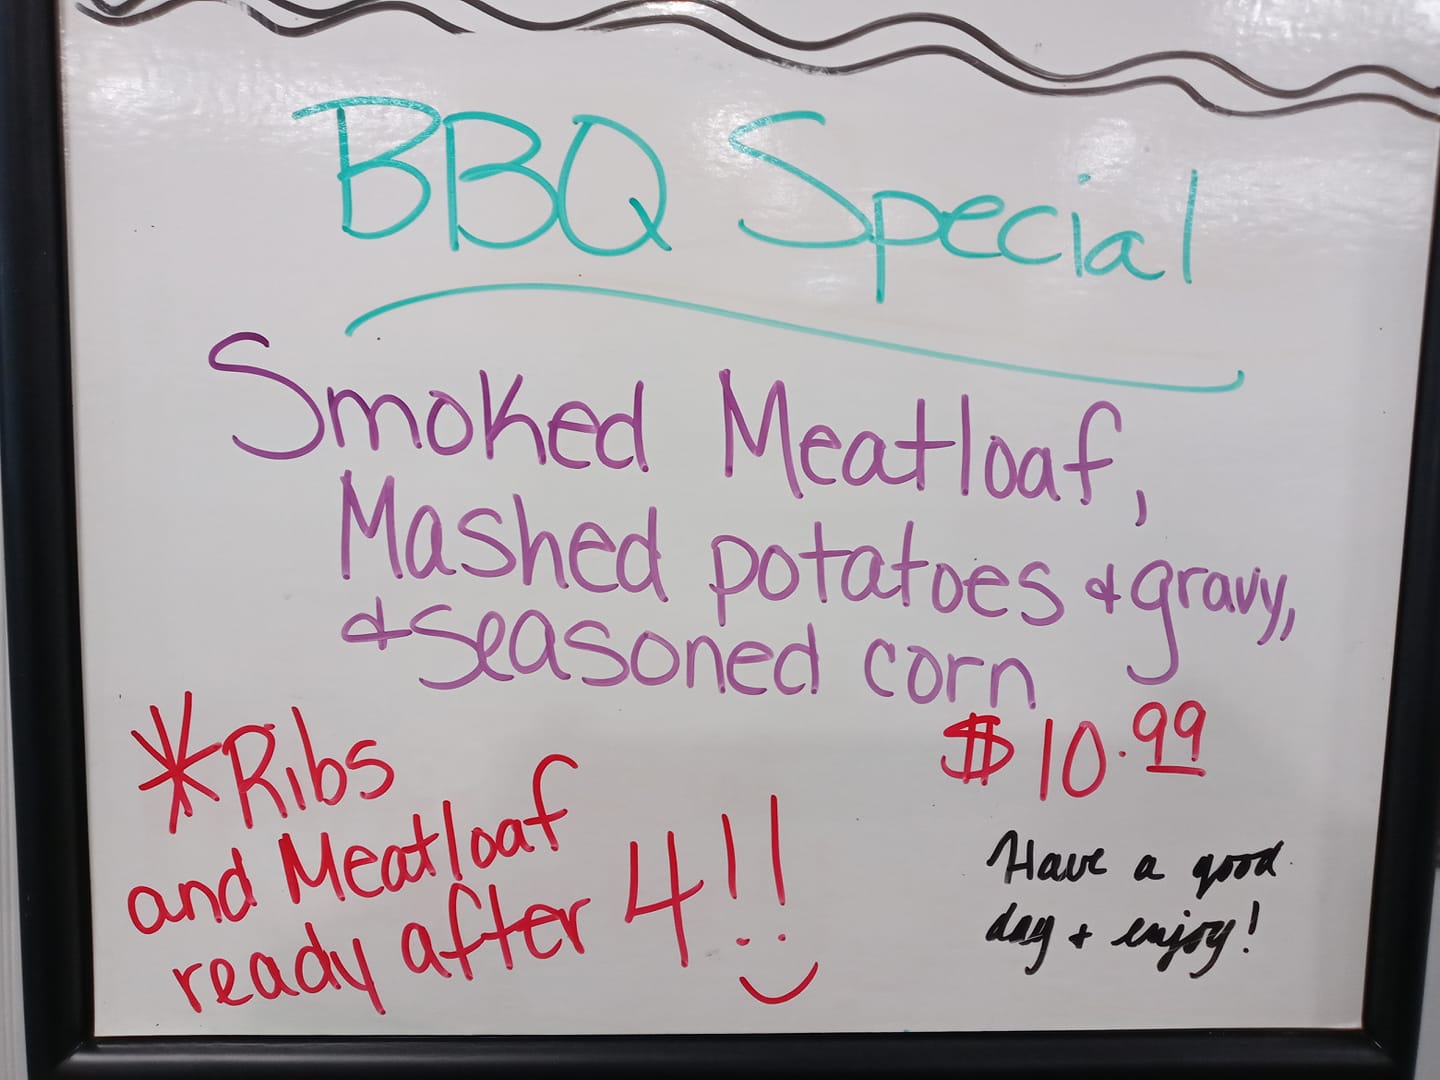 BBQ Special
Smoked Meatloaf,
Mashed potatoes & gravy,
& seasoned corn
$10.99
*Ribs
and Meatloaf
ready after 4!!
Have a good
day + enjoy!